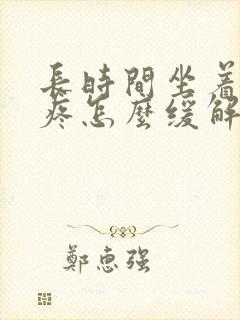 長時間坐着
疼怎麼緩解
鄭惠强